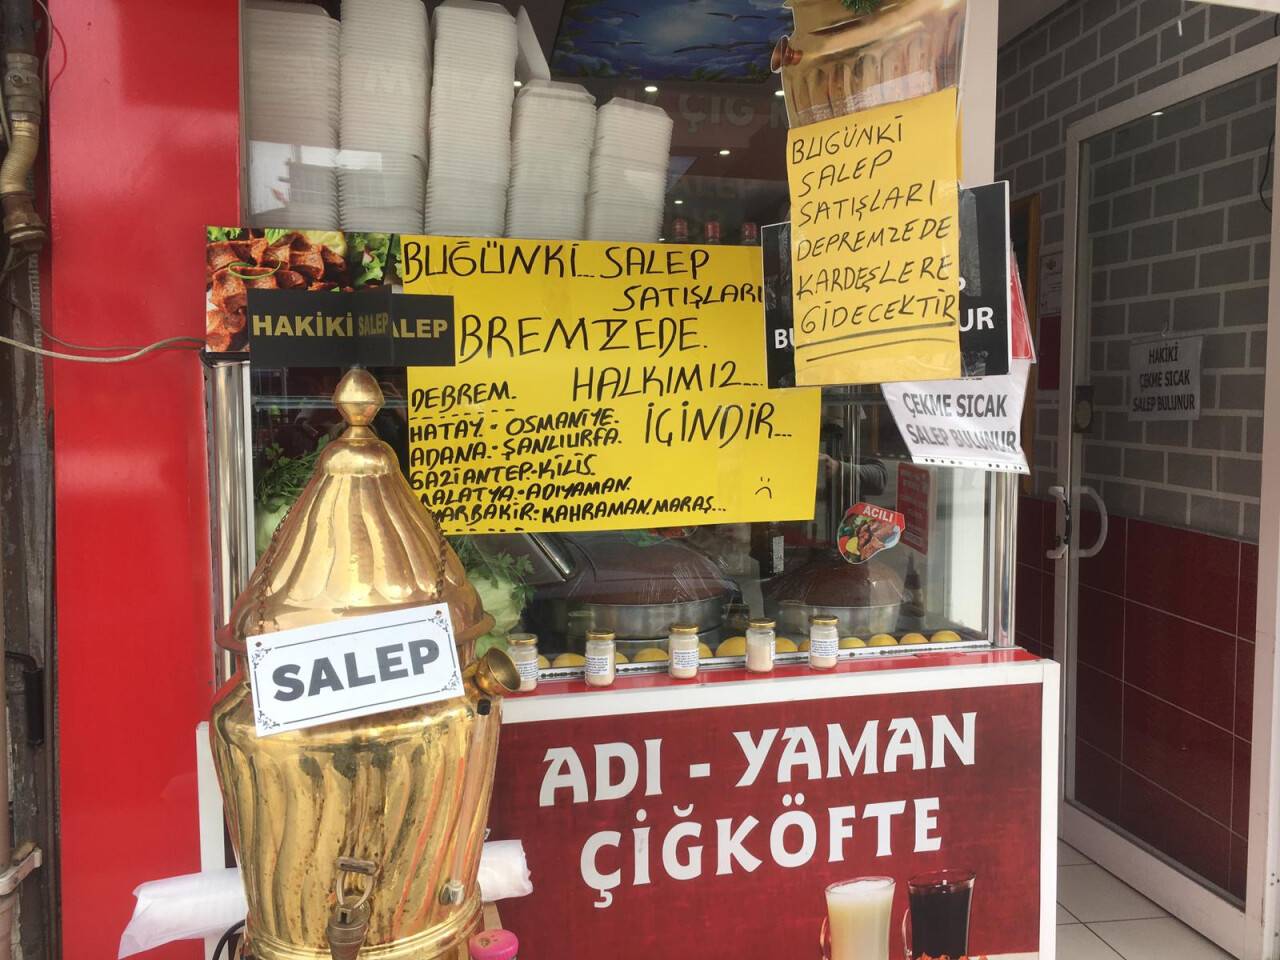 BUGÜNKİ
SALEP
SATIŞLARI
DEPREMZEDE
KARDEŞLERE
GİDECEKTİR
BUGÜNKİ... SALEP
SATIŞLARI
BREMZEDE.
DEBREM. HALKIMIZ...
İÇİNDİR...
HATAY.- OSMANİYE.
ADANA.- ŞANLIURFA.
GAZİANTEP-KİLİS
MALATYA.-ADIYAMAN.
KAHRAMAN.MARAŞ...
HAKİKİ SALEP
SALEP
ÇEKME SICAK
SALEP BULUNUR
HAKİKİ
ÇEKME SICAK
SALEP BULUNUR
ACILI
SALEP
ADI - YAMAN
ÇİĞKÖFTE